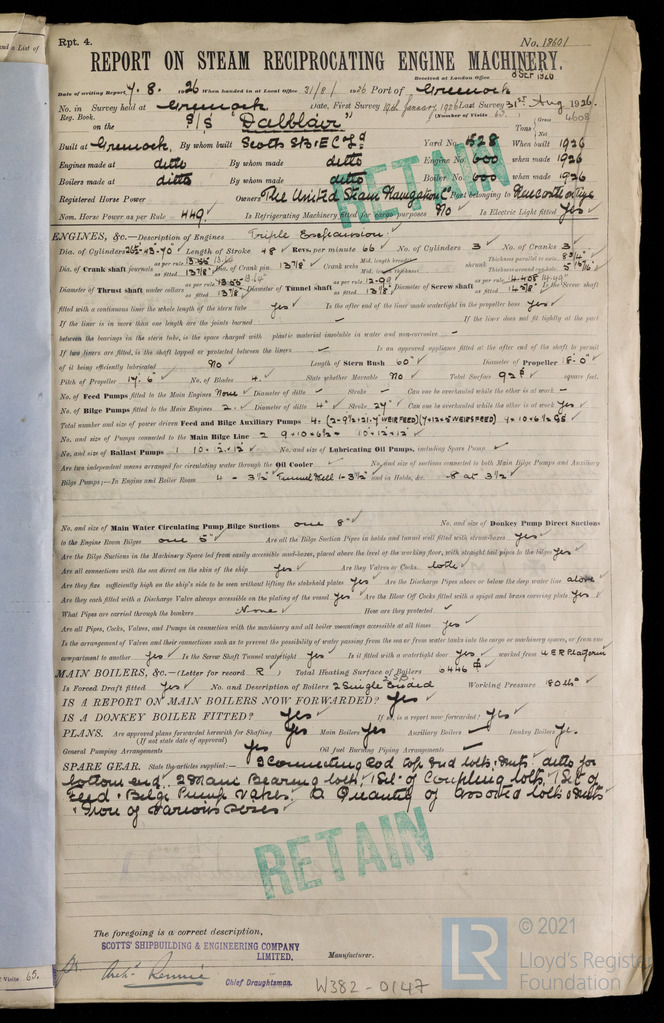 and a List of
Rpt. 4.
No. 18601
REPORT ON STEAM RECIPROCATING ENGINE MACHINERY.
Received at London Office 8 SEP 1926
Date of writing Report 7. 8. 1926 When handed in at Local Office 31/8/1926 Port of Greenock
No. in Survey held at Greenock Date, First Survey 19th January, 1926 Last Survey 31st Aug 1926.
Reg. Book. (Number of Visits 65.)
on the S/S "Dalblair" Tons Gross 4608 Net
Built at Greenock, By whom built Scotts SB & E Co Ld Yard No. 528 When built 1926
Engines made at ditto By whom made ditto Engine No. 600 when made 1926
Boilers made at ditto By whom made ditto Boiler No. 600 when made 1926
Registered Horse Power Owners The United Steam Navigation Co Port belonging to Newcastle on Tyne
Nom. Horse Power as per Rule 449. Is Refrigerating Machinery fitted for cargo purposes No Is Electric Light fitted Yes
RETAIN
ENGINES, &c.—Description of Engines Triple Expansion
Dia. of Cylinders 26½-43-70" Length of Stroke 48 Revs. per minute 66 No. of Cylinders 3 No. of Cranks 3
Dia. of Crank shaft journals as per rule 13.55 as fitted 13⅞" Dia. of Crank pin 13⅞" Crank webs Mid. length breadth Mid. length thickness shrunk Thickness parallel to axis 8¾" Thickness around eye-hole
Diameter of Thrust shaft under collars as per rule as fitted 13⅞" Diameter of Tunnel shaft as per rule as fitted 13⅛" Diameter of Screw shaft as per rule 14.408 as fitted 14⅞" Is the Screw shaft
fitted with a continuous liner the whole length of the stern tube yes Is the after end of the liner made watertight in the propeller boss yes
If the liner is in more than one length are the joints burned — If the liner does not fit tightly at the part
between the bearings in the stern tube, is the space charged with a plastic material insoluble in water and non-corrosive —
If two liners are fitted, is the shaft lapped or protected between the liners — Is an approved appliance fitted at the after end of the shaft to permit
of it being efficiently lubricated No Length of Stern Bush 60" Diameter of Propeller 18'-0"
Pitch of Propeller 17'.6" No. of Blades 4. State whether Moveable No Total Surface 92 square feet.
No. of Feed Pumps fitted to the Main Engines None Diameter of ditto — Stroke — Can one be overhauled while the other is at work —
No. of Bilge Pumps fitted to the Main Engines 2. Diameter of ditto 4" Stroke 24" Can one be overhauled while the other is at work Yes
Total number and size of power driven Feed and Bilge Auxiliary Pumps
No. and size of Pumps connected to the Main Bilge Line 2 9×10×6½ - 10×12×12"
No. and size of Ballast Pumps 1 10×12×12 No. and size of Lubricating Oil Pumps, including Spare Pump
Are two independent means arranged for circulating water through the Oil Cooler No. and size of suctions connected to both Main Bilge Pumps and Auxiliary
Bilge Pumps;—In Engine and Boiler Room 4 - 3½" Tunnel Well 1-3½" and in Holds, &c. 8 at 3½"
No. and size of Main Water Circulating Pump Bilge Suctions one 8" No. and size of Donkey Pump Direct Suctions
to the Engine Room Bilges one 5" Are all the Bilge Suction Pipes in holds and tunnel well fitted with strum-boxes Yes
Are the Bilge Suctions in the Machinery Space led from easily accessible mud-boxes, placed above the level of the working floor, with straight tail pipes to the bilges yes
Are all connections with the sea direct on the skin of the ship yes Are they Valves or Cocks both
Are they fixed sufficiently high on the ship's side to be seen without lifting the stokehold plates Yes Are the Discharge Pipes above or below the deep water line above
Are they each fitted with a Discharge Valve always accessible on the plating of the vessel Yes Are the Blow Off Cocks fitted with a spigot and brass covering plate Yes
What Pipes are carried through the bunkers None How are they protected
Are all Pipes, Cocks, Valves, and Pumps in connection with the machinery and all boiler mountings accessible at all times yes
Is the arrangement of Valves and their connections such as to prevent the possibility of water passing from the sea or from water tanks into the cargo or machinery spaces, or from one
compartment to another Yes Is the Screw Shaft Tunnel watertight Yes Is it fitted with a watertight door yes worked from U E R Platform
MAIN BOILERS, &c.—(Letter for record R) Total Heating Surface of Boilers 6446
Is Forced Draft fitted yes No. and Description of Boilers 2 Single Ended 2SB Working Pressure 180 lbs
IS A REPORT ON MAIN BOILERS NOW FORWARDED? Yes
IS A DONKEY BOILER FITTED? Yes If so, is a report now forwarded? Yes
PLANS. Are approved plans forwarded herewith for Shafting Yes Main Boilers Yes Auxiliary Boilers — Donkey Boilers Yes.
(If not state date of approval)
General Pumping Arrangements Yes Oil fuel Burning Piping Arrangements —
SPARE GEAR. State the articles supplied:— 2 Connecting Rod top End bolts & nuts. ditto for
bottom end. 2 Main Bearing bolts, 1 Set of Coupling bolts, 1 Set of
Feed & Bilge Pump Valves. A Quantity of assorted bolts & nuts
& Iron of various sizes.
RETAIN
The foregoing is a correct description,
SCOTTS' SHIPBUILDING & ENGINEERING COMPANY
LIMITED. Manufacturer.
Archd. Rennie
Chief Draughtsman.
W382-0147
Visits 65.
© 2021
LR
Lloyd's Register
Foundation